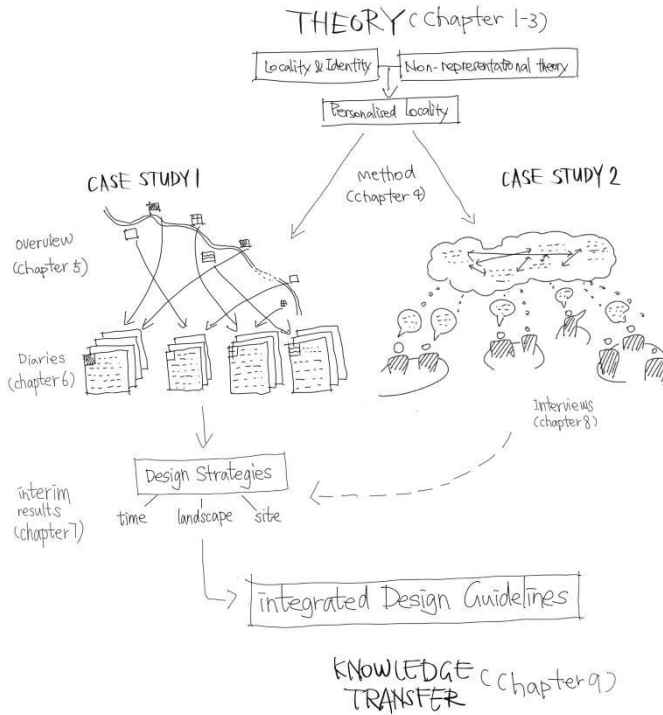 THEORY (Chapter 1-3)
Locality & Identity
Non-representational theory
Personalised Locality
CASE STUDY 1
method
(chapter 4)
CASE STUDY 2
overview
(chapter 5)
Diaries
(chapter 6)
Interviews
(chapter 8)
Design Strategies
interim
results
(chapter 7)
time landscape site
integrated Design Guidelines
KNOWLEDGE
TRANSFER (Chapter 9)